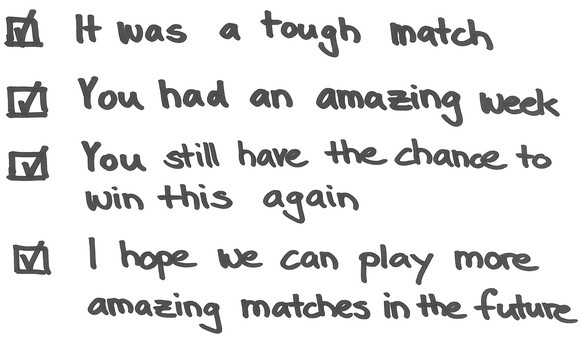 It was a tough match
You had an amazing week
You still have the chance to
win this again
I hope we can play more
amazing matches in the future